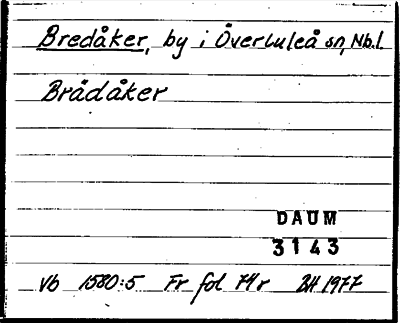 Bredåker, by i Överluleå sn, Nb.l.
Brädåker
DAUM
3143
Vb 1580:5 Fr fol 74r BH 1977